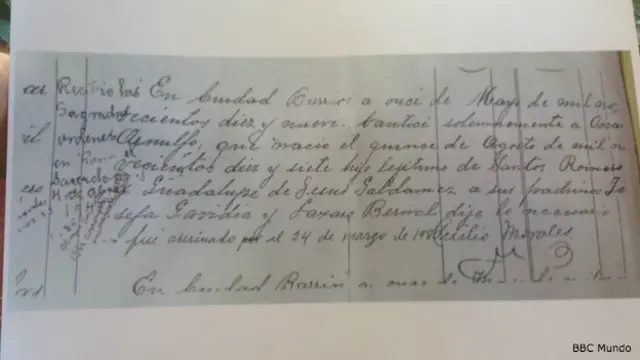 Recibió las En Ciudad Barrios a once de Mayo de mil no
Sagradas vecientos diez y nueve bauticé solemnemente a Oscar
ordenes Arnulfo, que nació el quince de Agosto de mil n
en Roma vecientos diez y siete hijo legitimo de Santos Romero
Sacerdote y Guadalupe de Jesus Galdamez a sus padrinos Jo
de Abril sefa Gavidia y Bernal dije lo necesario
fué asesinado por el 24 de marzo de 198 Cecilio Morales
En Ciudad Barrios a once de
BBC Mundo